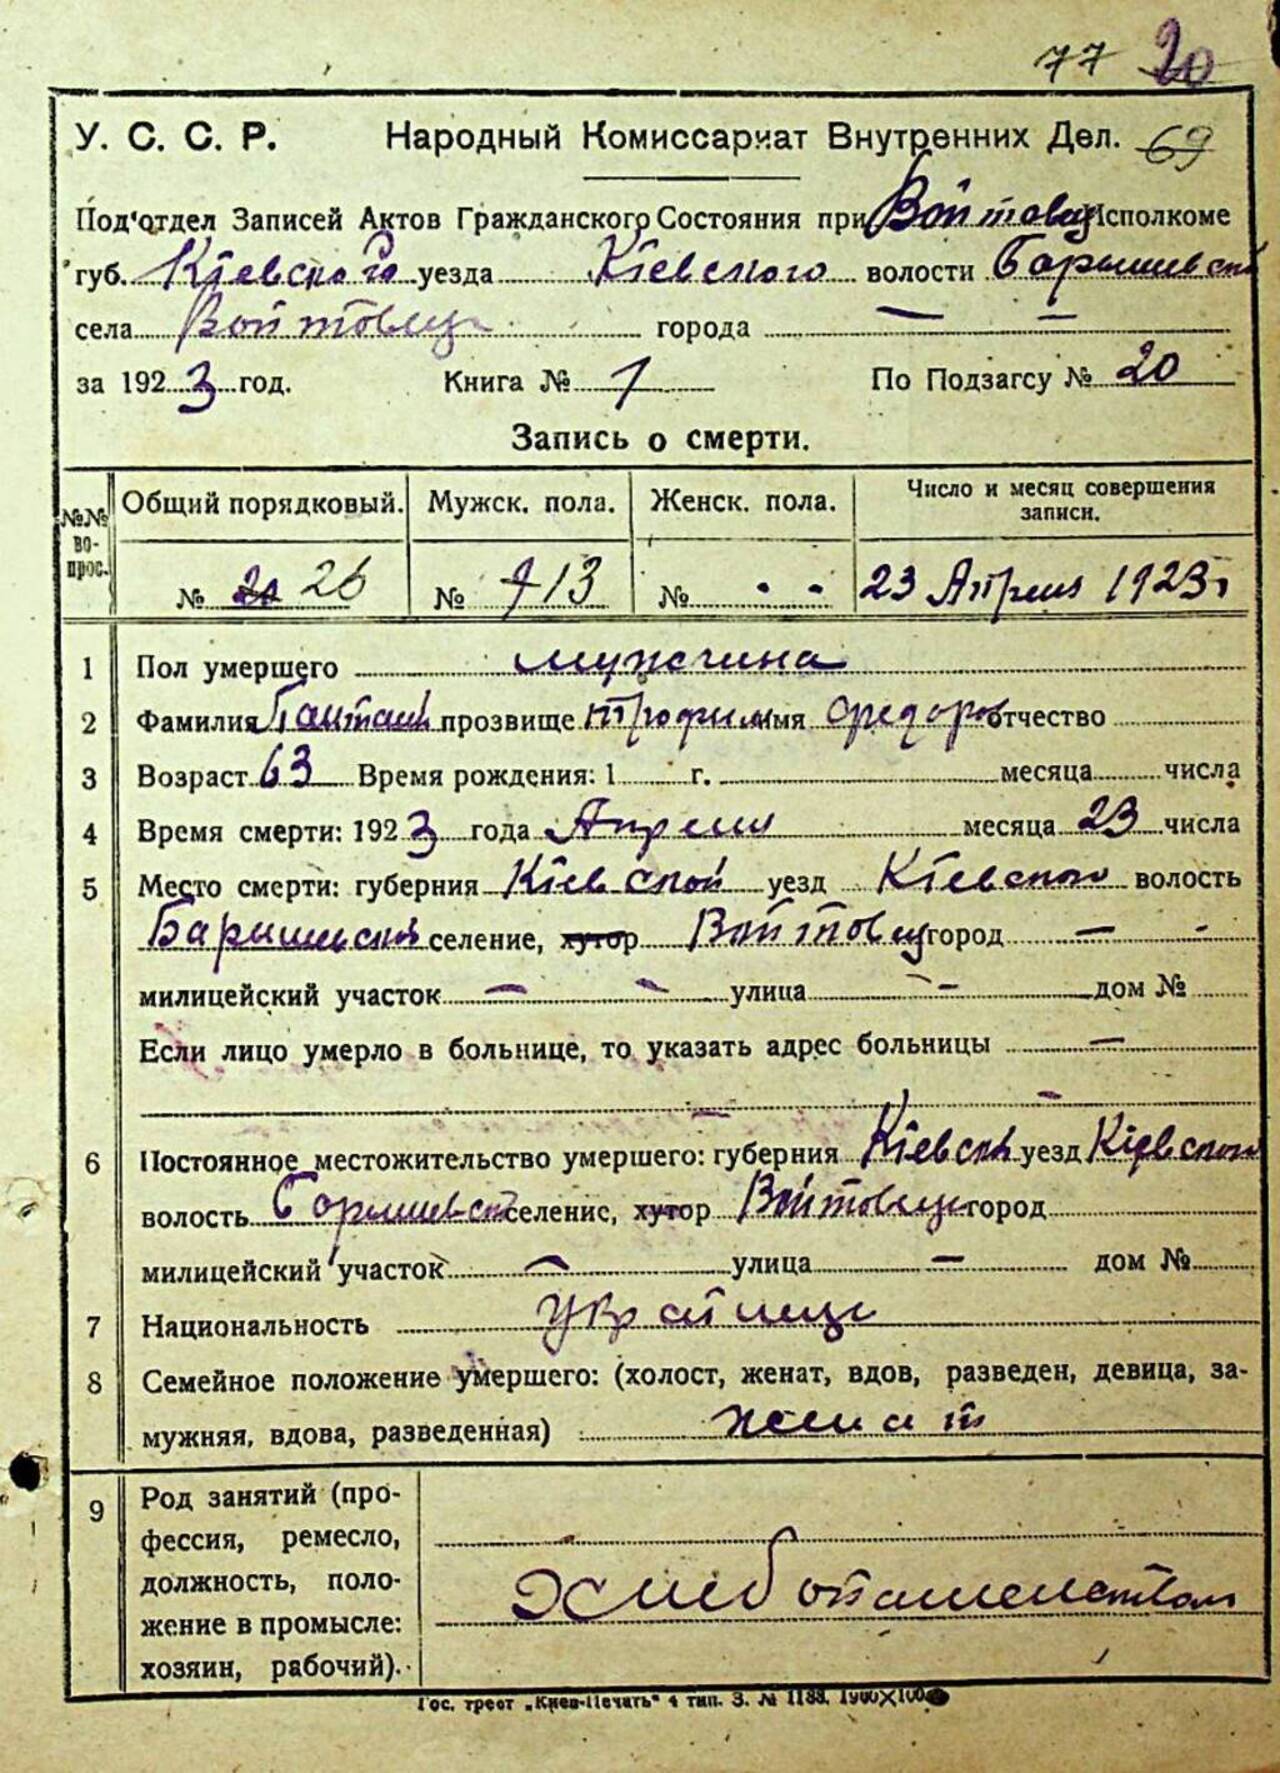 77 20
У. С. С. Р. Народный Комиссариат Внутренних Дел. 69
Под'отдел Записей Актов Гражданского Состояния при Войтовец Исполкоме
губ. Кіевского уезда Кіевского волости Барышевск
села Войтовцы города — —
за 1923 год. Книга № 1 По Подзагсу № 20
Запись о смерти.
№№ вопрос. Общий порядковый. Мужск. пола. Женск. пола. Число и месяц совершения записи.
№ 20 26 № 13 № 23 Апреля 1923 г
1 Пол умершего мужчина
2 Фамилия прозвище Трофим имя Федоров отчество
3 Возраст 63 Время рождения: 1 г. месяца числа
4 Время смерти: 1923 года Апреля месяца 23 числа
5 Место смерти: губерния Кіевской уезд Кіевского волость
Барышевской селение, хутор Войтовцы город — -
милицейский участок — - улица — дом №
Если лицо умерло в больнице, то указать адрес больницы —
— -
6 Постоянное местожительство умершего: губерния Кіевск уезд Кіевского
волость Барышевск селение, хутор Войтовцы город
милицейский участок — улица — дом №
7 Национальность Украинец
8 Семейное положение умершего: (холост, женат, вдов, разведен, девица, за-
мужняя, вдова, разведенная) женат
9 Род занятий (про-
фессия, ремесло,
должность, поло- Хлебопашеством
жение в промысле:
хозяин, рабочий).
Гос. трест „Киев-Печать" 4 тип. З. № 1188.